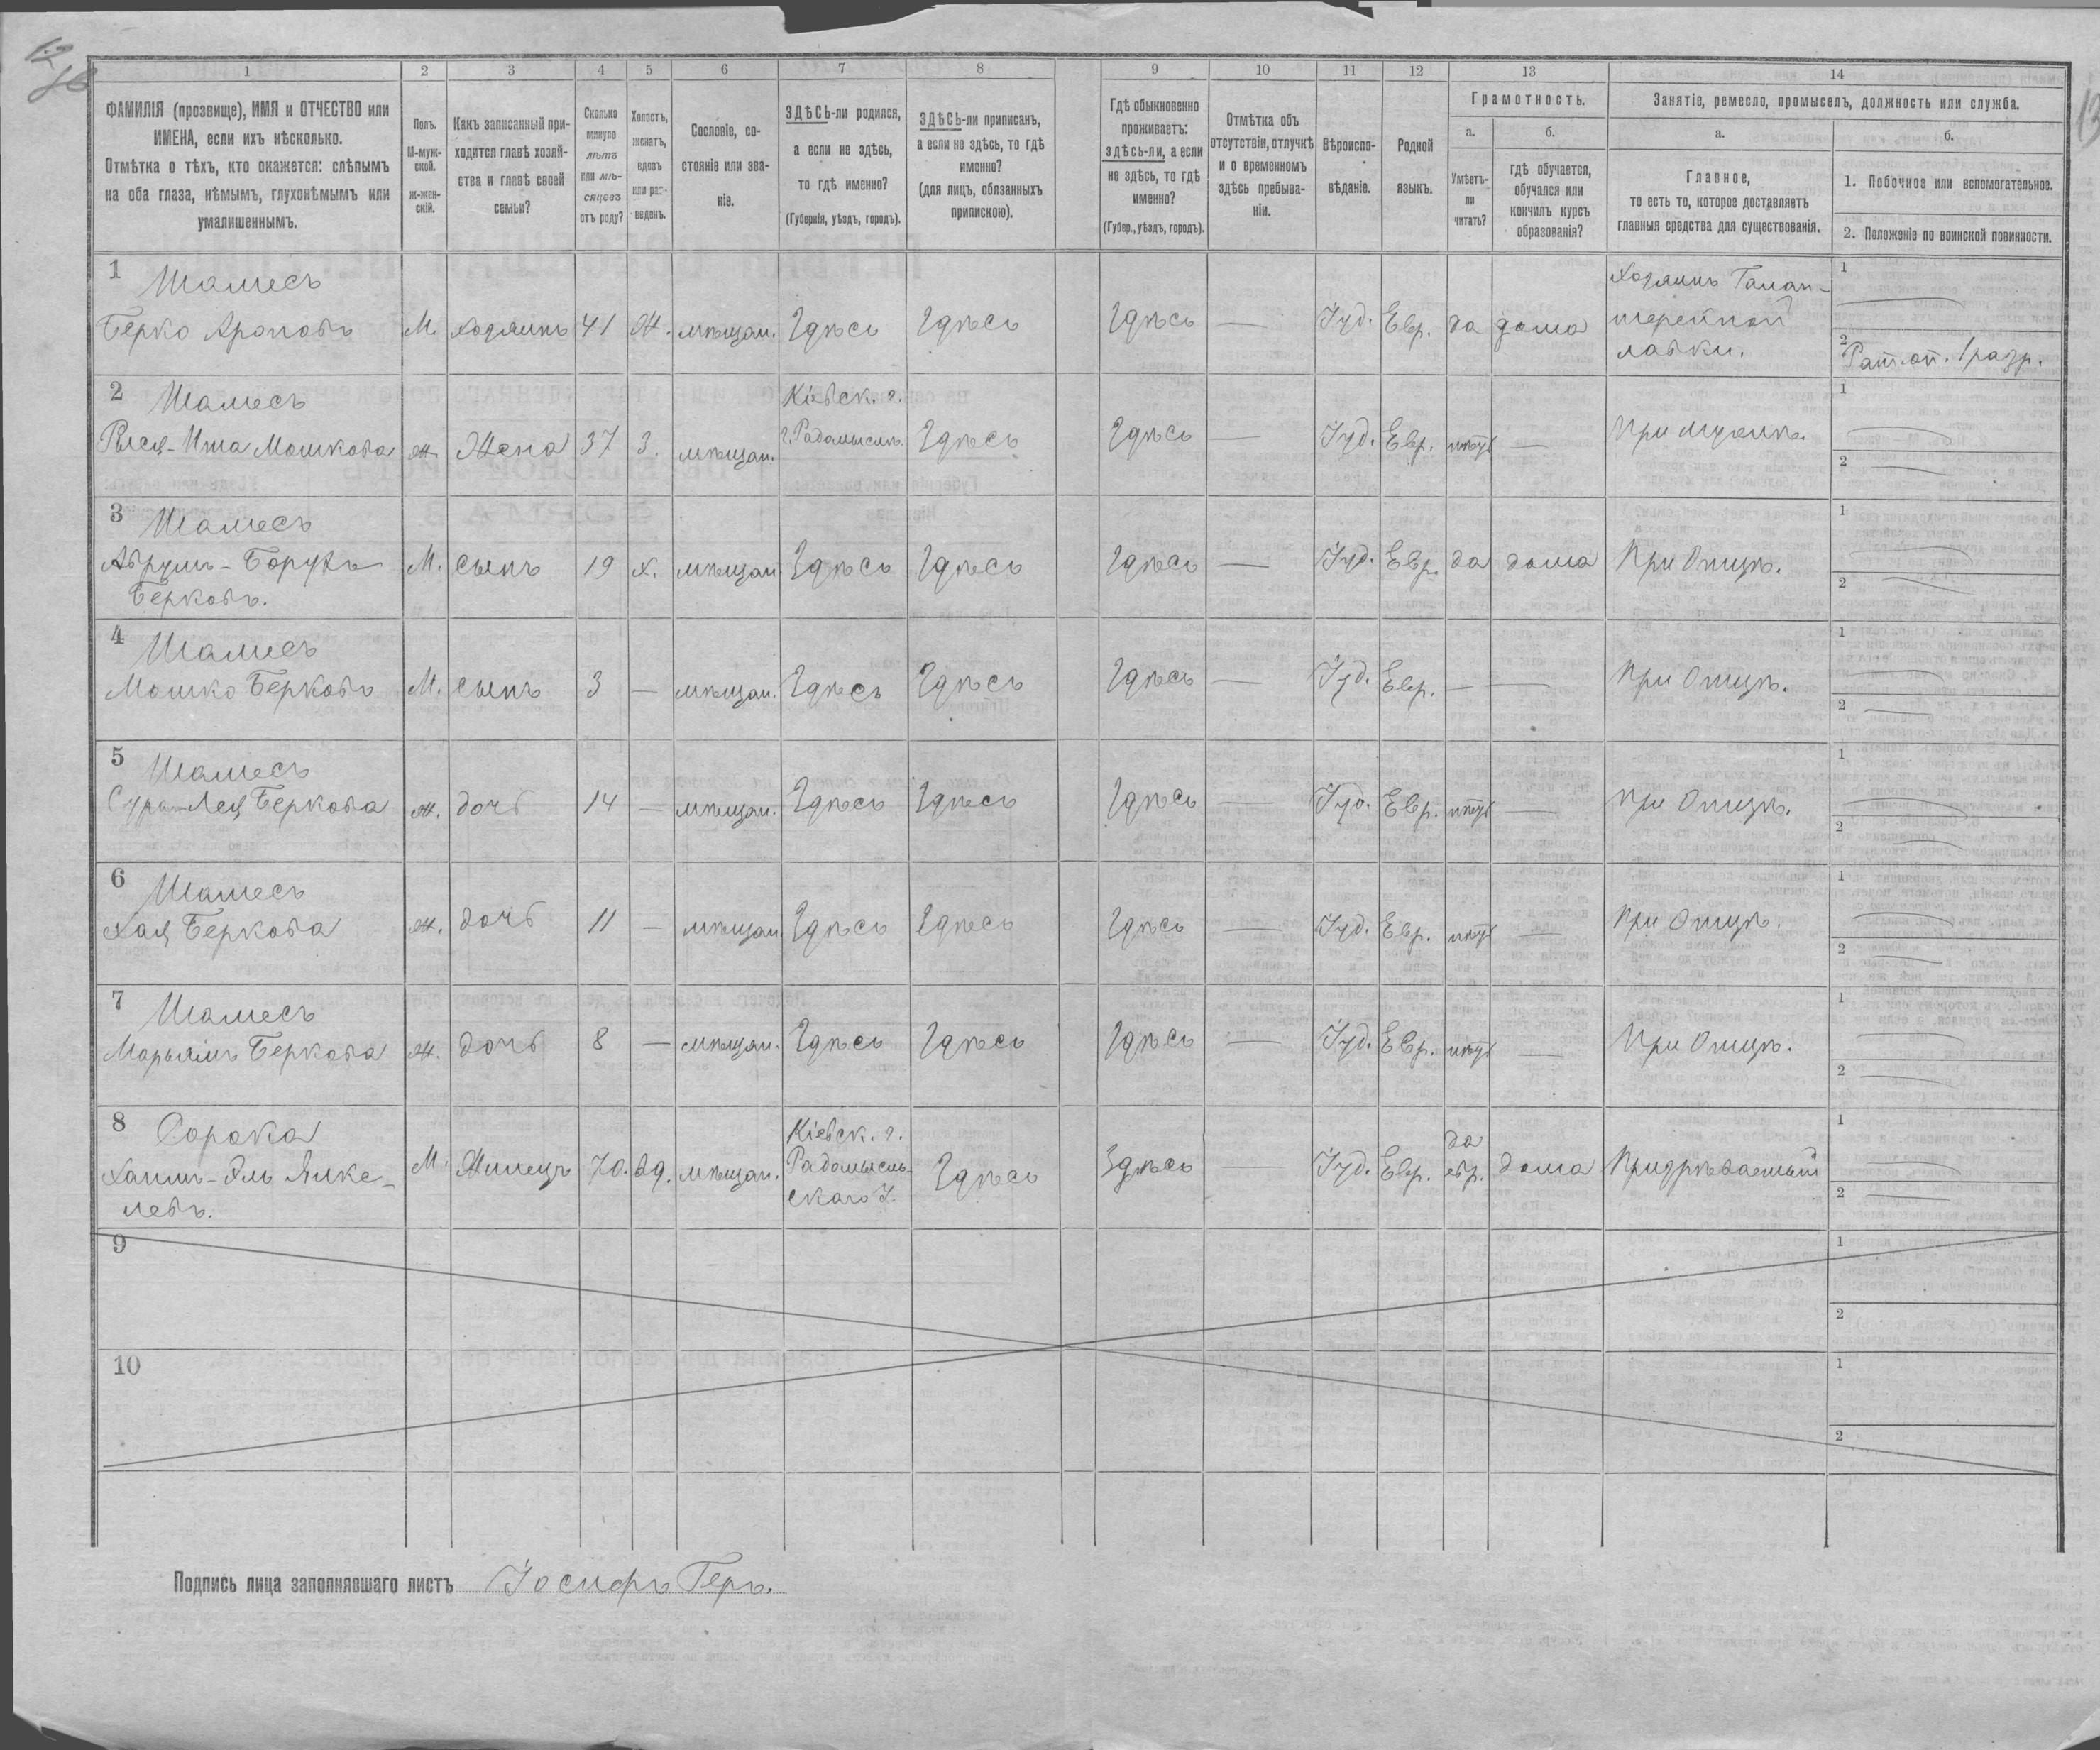 1 2 3 4 5 6 7 8 9 10 11 12 13 14
ФАМИЛІЯ (прозвище), ИМЯ и ОТЧЕСТВО или
ИМЕНА, если ихъ нѣсколько.
Отмѣтка о тѣхъ, кто окажется: слѣпымъ
на оба глаза, нѣмымъ, глухонѣмымъ или
умалишеннымъ.
Полъ.
М-муж-
ской.
ж-жен-
скій.
Какъ записанный при-
ходится главѣ хозяй-
ства и главѣ своей
семьи?
Сколько
минуло
лѣтъ
или мѣ-
сяцевъ
отъ роду?
Холостъ,
женатъ,
вдовъ
или раз-
веденъ.
Сословіе, со-
стояніе или зва-
ніе.
ЗДѢСЬ-ли родился,
а если не здѣсь,
то гдѣ именно?
(Губернія, уѣздъ, городъ).
ЗДѢСЬ-ли приписанъ,
а если не здѣсь, то гдѣ
именно?
(для лицъ, обязанныхъ
припискою).
Гдѣ обыкновенно
проживаетъ:
здѣсь-ли, а если
не здѣсь, то гдѣ
именно?
(Губер., уѣздъ, городъ).
Отмѣтка объ
отсутствіи, отлучкѣ
и о временномъ
здѣсь пребыва-
ніи.
Вѣроиспо-
вѣданіе.
Родной
языкъ.
Грамотность.
а.
Умѣетъ-
ли
читать?
б.
гдѣ обучается,
обучался или
кончилъ курсъ
образованія?
Занятіе, ремесло, промыселъ, должность или служба.
а.
Главное,
то есть то, которое доставляетъ
главныя средства для существованія.
б.
1. Побочное или вспомогательное.
2. Положеніе по воинской повинности.
1 Шамесъ
Берко Ароновъ М. хозяинъ 41 Ж. мѣщан. Здѣсь Здѣсь Здѣсь — Іуд. Евр. да дома
Хозяинъ Галан-
терейной
лавки.
1 —
2 Рат. оп. 1 разр.
2 Шамесъ
Рыся-Ита Мошкова ж. Жена 37 З. мѣщан.
Кіевск. г.
г. Радомысль Здѣсь Здѣсь — Іуд. Евр. нѣтъ — При мужѣ.
1
2 —
3 Шамесъ
Аврумъ-Борухъ М. сынъ 19 х. мѣщан. Здѣсь Здѣсь Здѣсь — Іуд. Евр. да дома При Отцѣ.
Берковъ.
1 —
2 —
4 Шамесъ
Мошко Берковъ М. сынъ 3 — мѣщан. Здѣсь Здѣсь Здѣсь — Іуд. Евр. — — При Отцѣ.
1 —
2 —
5 Шамесъ
Сура-Лея Беркова ж. дочь 14 — мѣщан. Здѣсь Здѣсь Здѣсь — Іуд. Евр. нѣтъ — При Отцѣ.
1 —
2 —
6 Шамесъ
Хая Беркова ж. дочь 11 — мѣщан. Здѣсь Здѣсь Здѣсь — Іуд. Евр. нѣтъ — При Отцѣ.
1 —
2 —
7 Шамесъ
Марьямъ Беркова ж. дочь 8 — мѣщан. Здѣсь Здѣсь Здѣсь — Іуд. Евр. нѣтъ — При Отцѣ.
1 —
2 —
8 Сорока
Хаимъ-Эль Янке-
левъ. М. Жилецъ 70. вд. мѣщан.
Кіевск. г.
Радомысль-
скаго У. Здѣсь Здѣсь — Іуд. Евр.
да
евр. дома Призрѣваемый
1 —
2 —
9
1
2
10
1
2
Подпись лица заполнявшаго листъ Іосифъ Геръ.